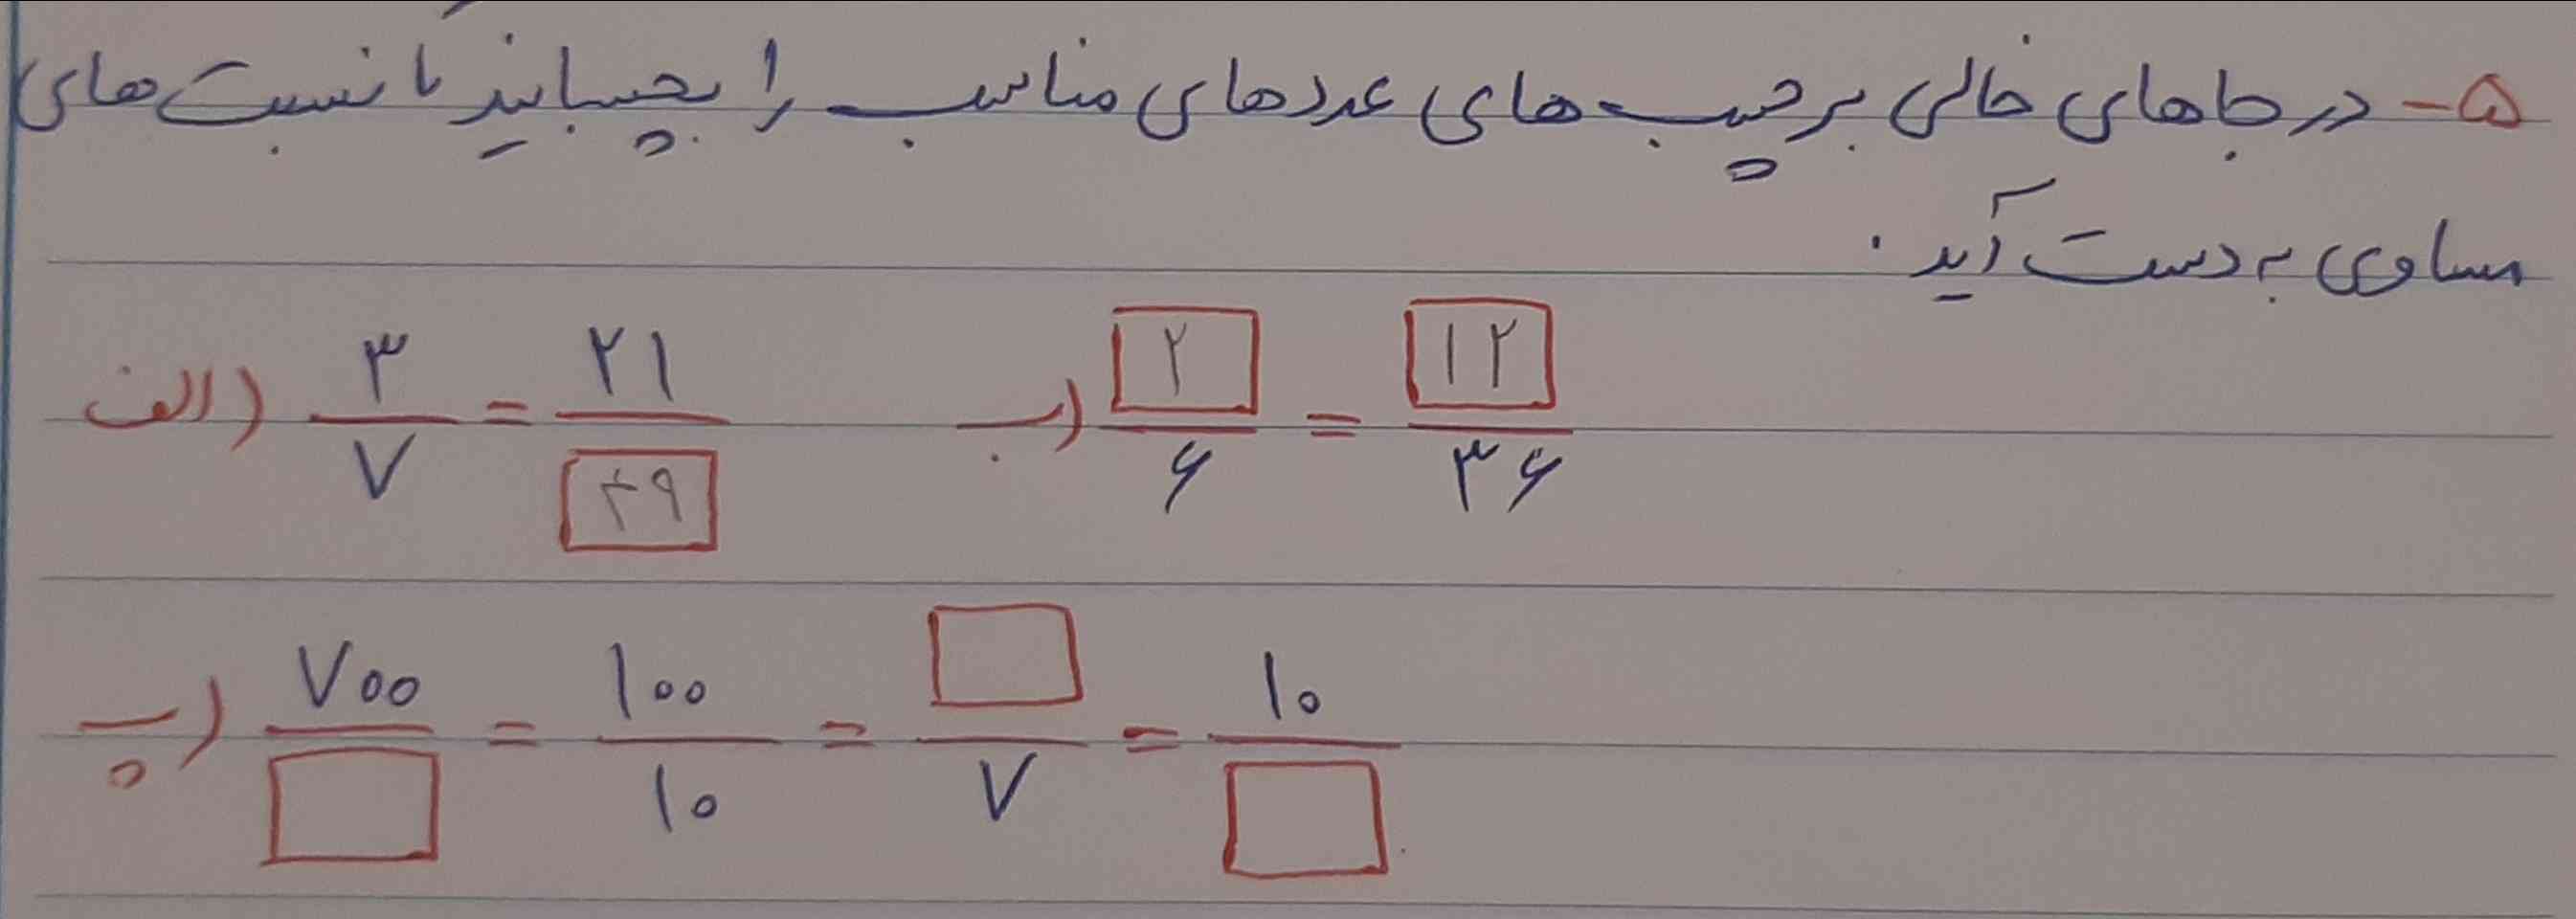 ۵- در جاهای خالی برچسب‌های عددهای مناسب را بچسبانید تا نسبت‌های
مساوی به دست آید.
الف) ۳/۷ = ۲۱/۴۹ ب) ۲/۶ = ۱۲/۳۶
پ) ۷۰۰/□ = ۱۰۰/۱۰ = □/۷ = ۱۰/□